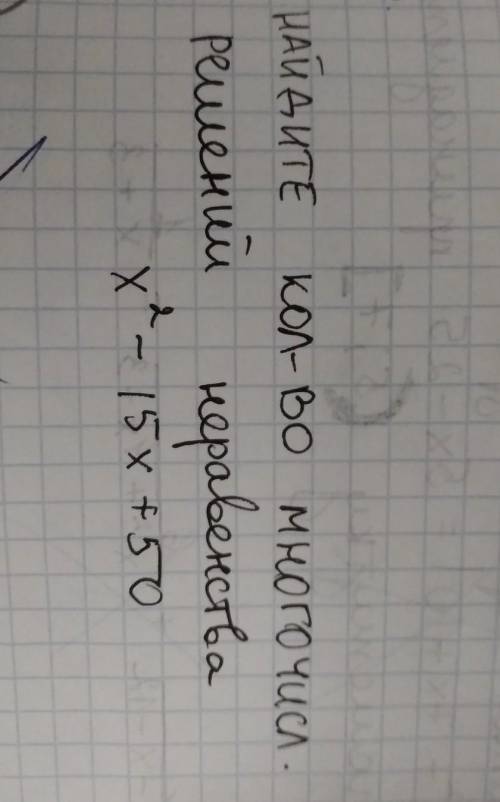 НАЙДИТЕ КОЛ-ВО МНОГОЧИСЛ.
решений неравенства
x² - 15x + 50